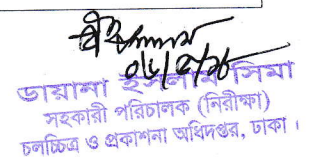 ডায়ানা ইসলাম সিমা
সহকারী পরিচালক (নিরীক্ষা)
চলচ্চিত্র ও প্রকাশনা অধিদপ্তর, ঢাকা।